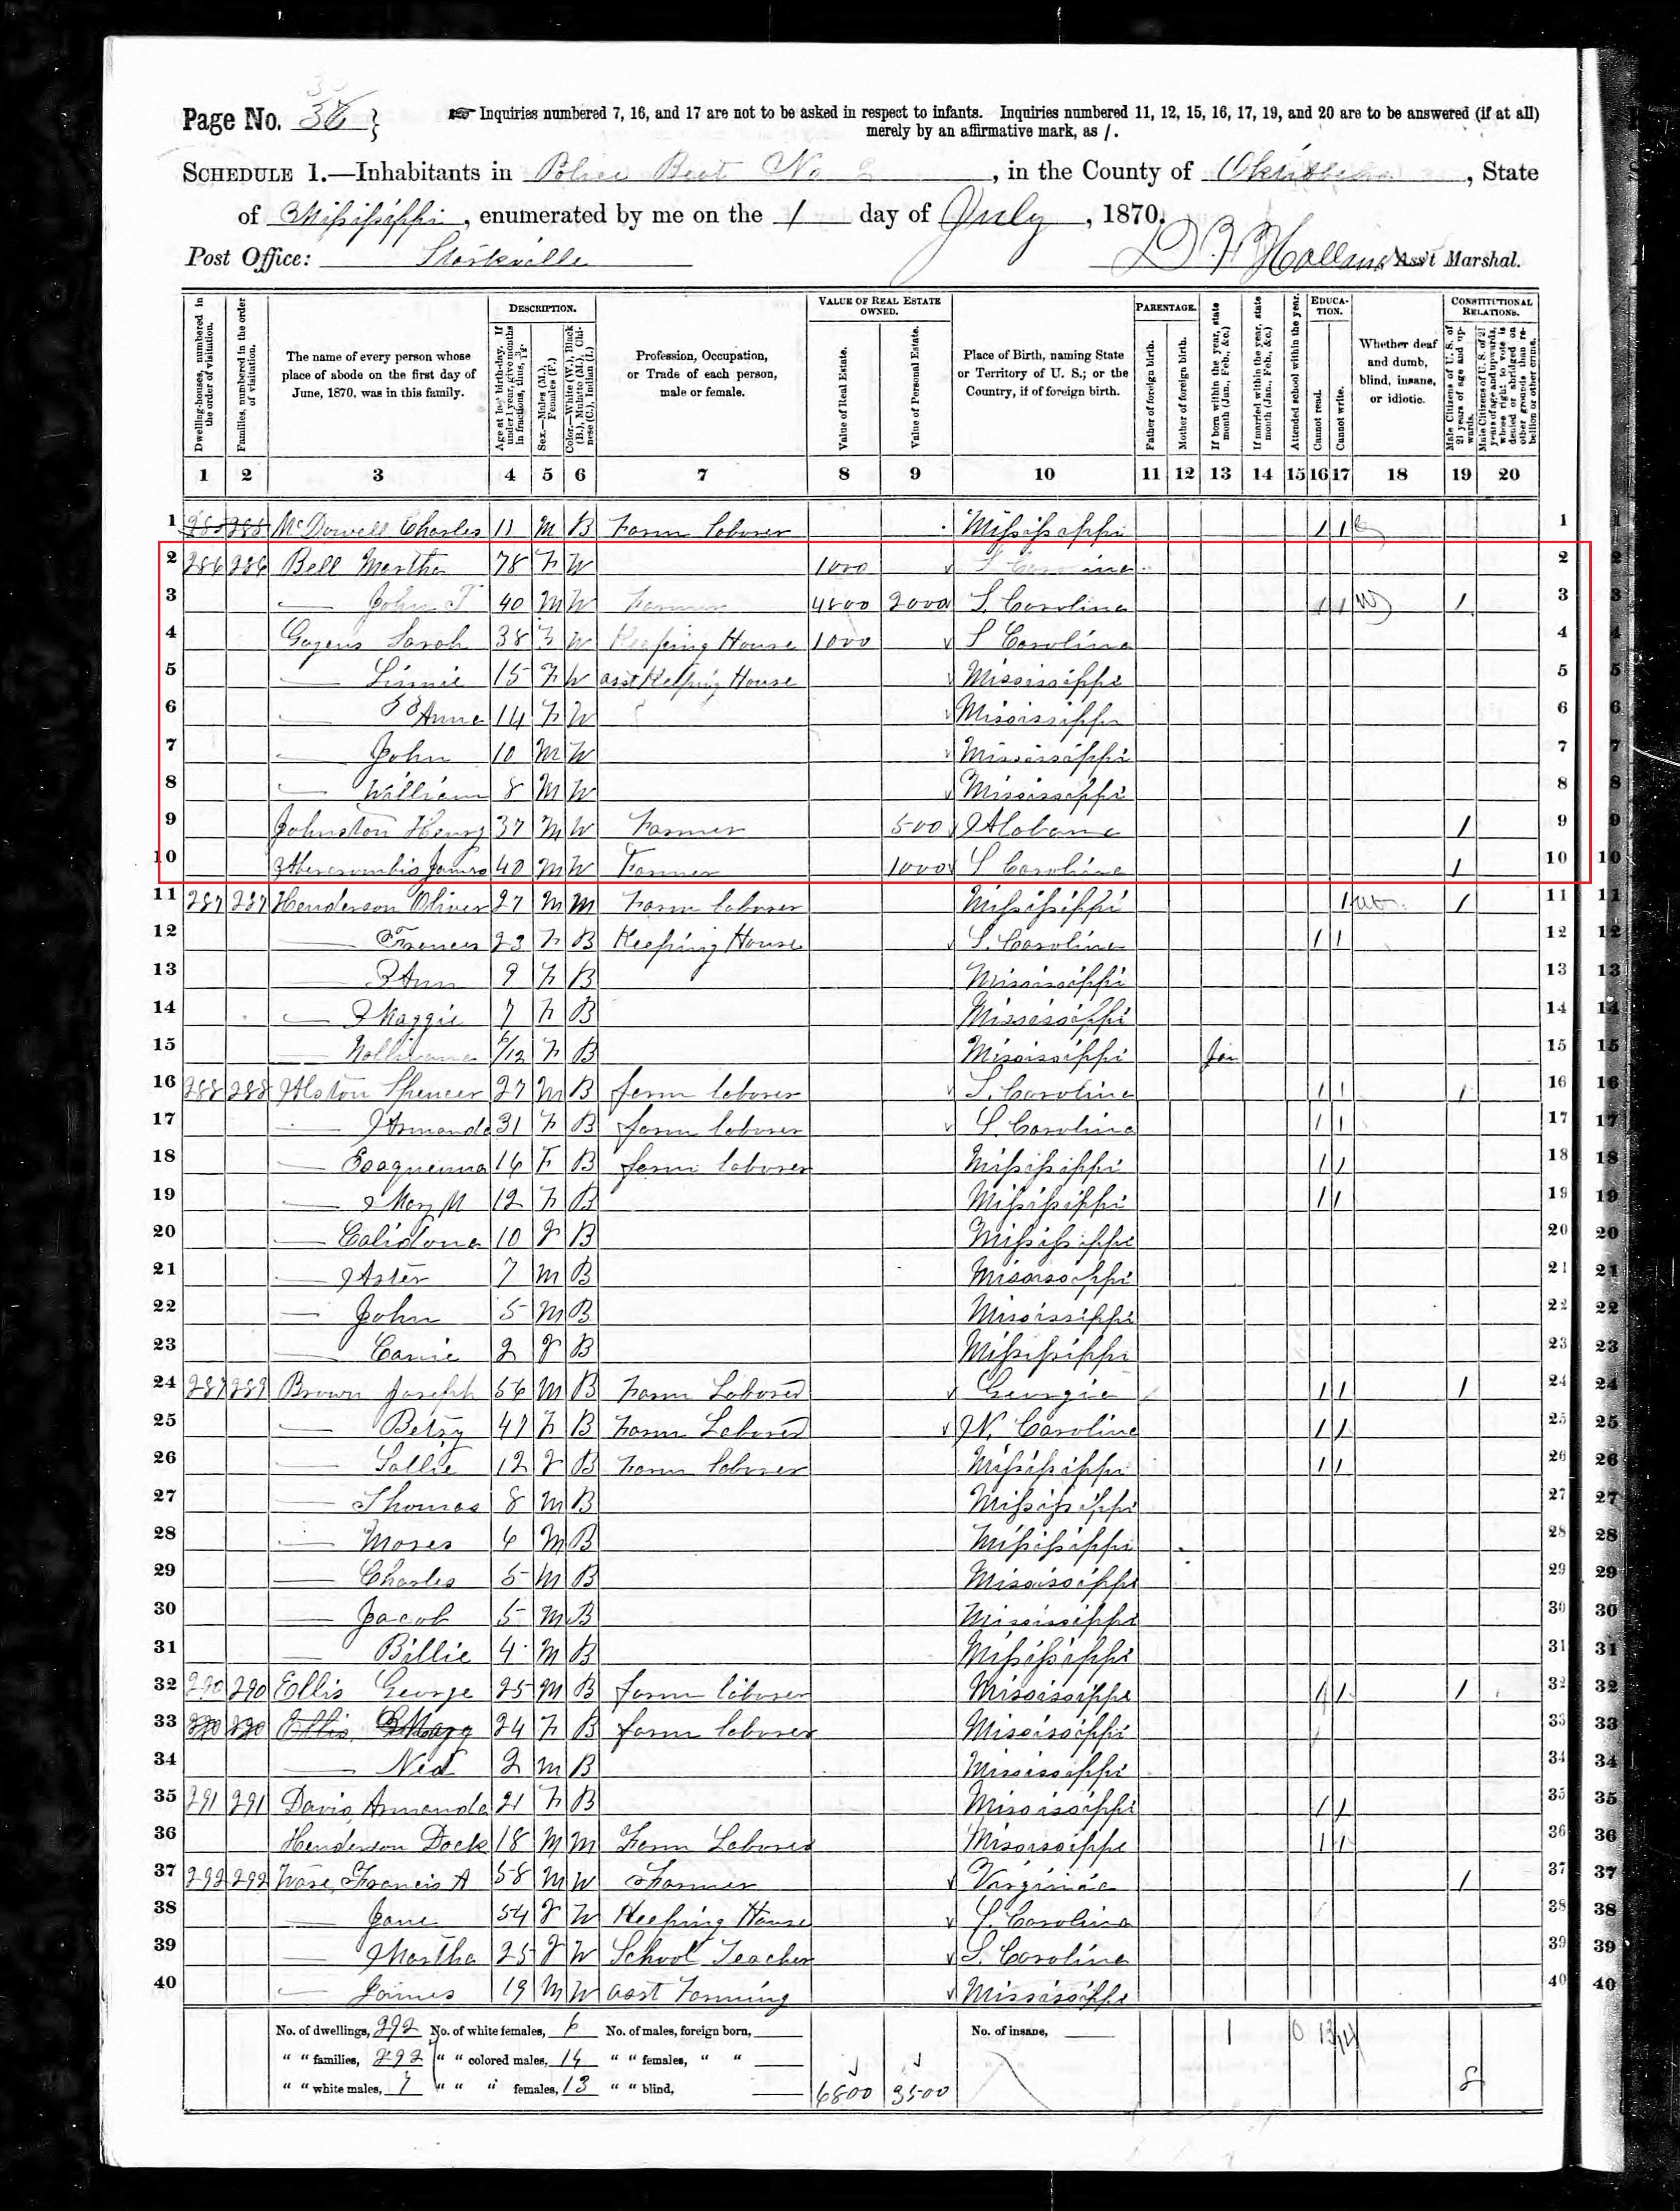 Page No. 38
☞ Inquiries numbered 7, 16, and 17 are not to be asked in respect to infants. Inquiries numbered 11, 12, 15, 16, 17, 19, and 20 are to be answered (if at all)
merely by an affirmative mark, as /.
SCHEDULE 1.—Inhabitants in Police Beat No 2, in the County of Oktibbeha, State
of Mississippi, enumerated by me on the 1 day of July, 1870.
Post Office: Starkville Holland, Ass't Marshal.
Dwelling-houses, numbered in the order of visitation.
Families, numbered in the order of visitation.
The name of every person whose place of abode on the first day of June, 1870, was in this family.
DESCRIPTION.
Age at last birth-day. If under 1 year, give months in fractions, thus, 3/12.
Sex.—Males (M.), Females (F.)
Color.—White (W.), Black (B.), Mulatto (M.), Chinese (C.), Indian (I.)
Profession, Occupation, or Trade of each person, male or female.
VALUE OF REAL ESTATE OWNED.
Value of Real Estate.
Value of Personal Estate.
Place of Birth, naming State or Territory of U. S.; or the Country, if of foreign birth.
PARENTAGE.
Father of foreign birth.
Mother of foreign birth.
If born within the year, state month (Jan., Feb., &c.)
If married within the year, state month (Jan., Feb., &c.)
Attended school within the year.
EDUCATION.
Cannot read.
Cannot write.
Whether deaf and dumb, blind, insane, or idiotic.
CONSTITUTIONAL RELATIONS.
Male Citizens of U. S. of 21 years of age and upwards.
Male Citizens of U. S. of 21 years of age and upwards, whose right to vote is denied or abridged on other grounds than rebellion or other crime.
1 2 3 4 5 6 7 8 9 10 11 12 13 14 15 16 17 18 19 20
1 285 285 McDowell Charles 11 M B Farm laborer Mississippi / / 1
2 286 286 Bell Martha 78 F W 1000 S Carolina 2
3 — John T 40 M W Farmer 4800 2000 S. Carolina / / / 3
4 Sarah 38 F W Keeping House 1000 S Carolina 4
5 — Linnie 15 F W asst Keeping House Mississippi 5
6 — Anna 14 F W Mississippi 6
7 — John 10 M W Mississippi 7
8 — William 8 M W Mississippi 8
9 Johnston Henry 37 M W Farmer 500 Alabama / 9
10 Abercrombie James 40 M W Farmer 1000 S Carolina / 10
11 287 287 Henderson Oliver 27 M M Farm laborer Mississippi / / 11
12 — Frances 23 F B Keeping House S. Carolina / / 12
13 — Ann 9 F B Mississippi 13
14 — Maggie 7 F B Mississippi 14
15 — 6/12 F B Mississippi Jan 15
16 288 288 Alston Spencer 27 M B farm laborer S. Carolina / / / 16
17 — Armanda 31 F B farm laborer S. Carolina / / 17
18 — 16 F B farm laborer Mississippi / / 18
19 — Mary M 12 F B Mississippi / / 19
20 — Calidona 10 F B Mississippi 20
21 — Aster 7 M B Mississippi 21
22 — John 5 M B Mississippi 22
23 — Carrie 2 F B Mississippi 23
24 289 289 Brown Joseph 56 M B Farm Laborer Georgia / / / 24
25 — Betsy 47 F B Farm Laborer N. Carolina / / 25
26 — Sallie 12 F B Farm laborer Mississippi / / 26
27 — Thomas 8 M B Mississippi 27
28 — Moses 6 M B Mississippi 28
29 — Charles 5 M B Mississippi 29
30 — Jacob 5 M B Mississippi 30
31 — Billie 4 M B Mississippi 31
32 290 290 Ellis George 25 M B farm laborer Mississippi / / / 32
33 290 290 Ellis Mary 24 F B farm laborer Mississippi / 33
34 — Ned 2 M B Mississippi 34
35 291 291 Davis Armanda 21 F B Mississippi / / 35
36 Henderson Dock 18 M M Farm Laborer Mississippi / / 36
37 292 292 Ware, Francis A 58 M W Farmer Virginia / 37
38 — Jane 54 F W Keeping House S. Carolina 38
39 — Martha 25 F W School Teacher S. Carolina 39
40 — James 19 M W asst Farming Mississippi 40
No. of dwellings, 292 No. of white females, 6 No. of males, foreign born, No. of insane, 1 0
" " families, 292 " " colored males, 14 " " females, " "
" " white males, 7 " " " females, 13 " " blind, 6800 3500 8